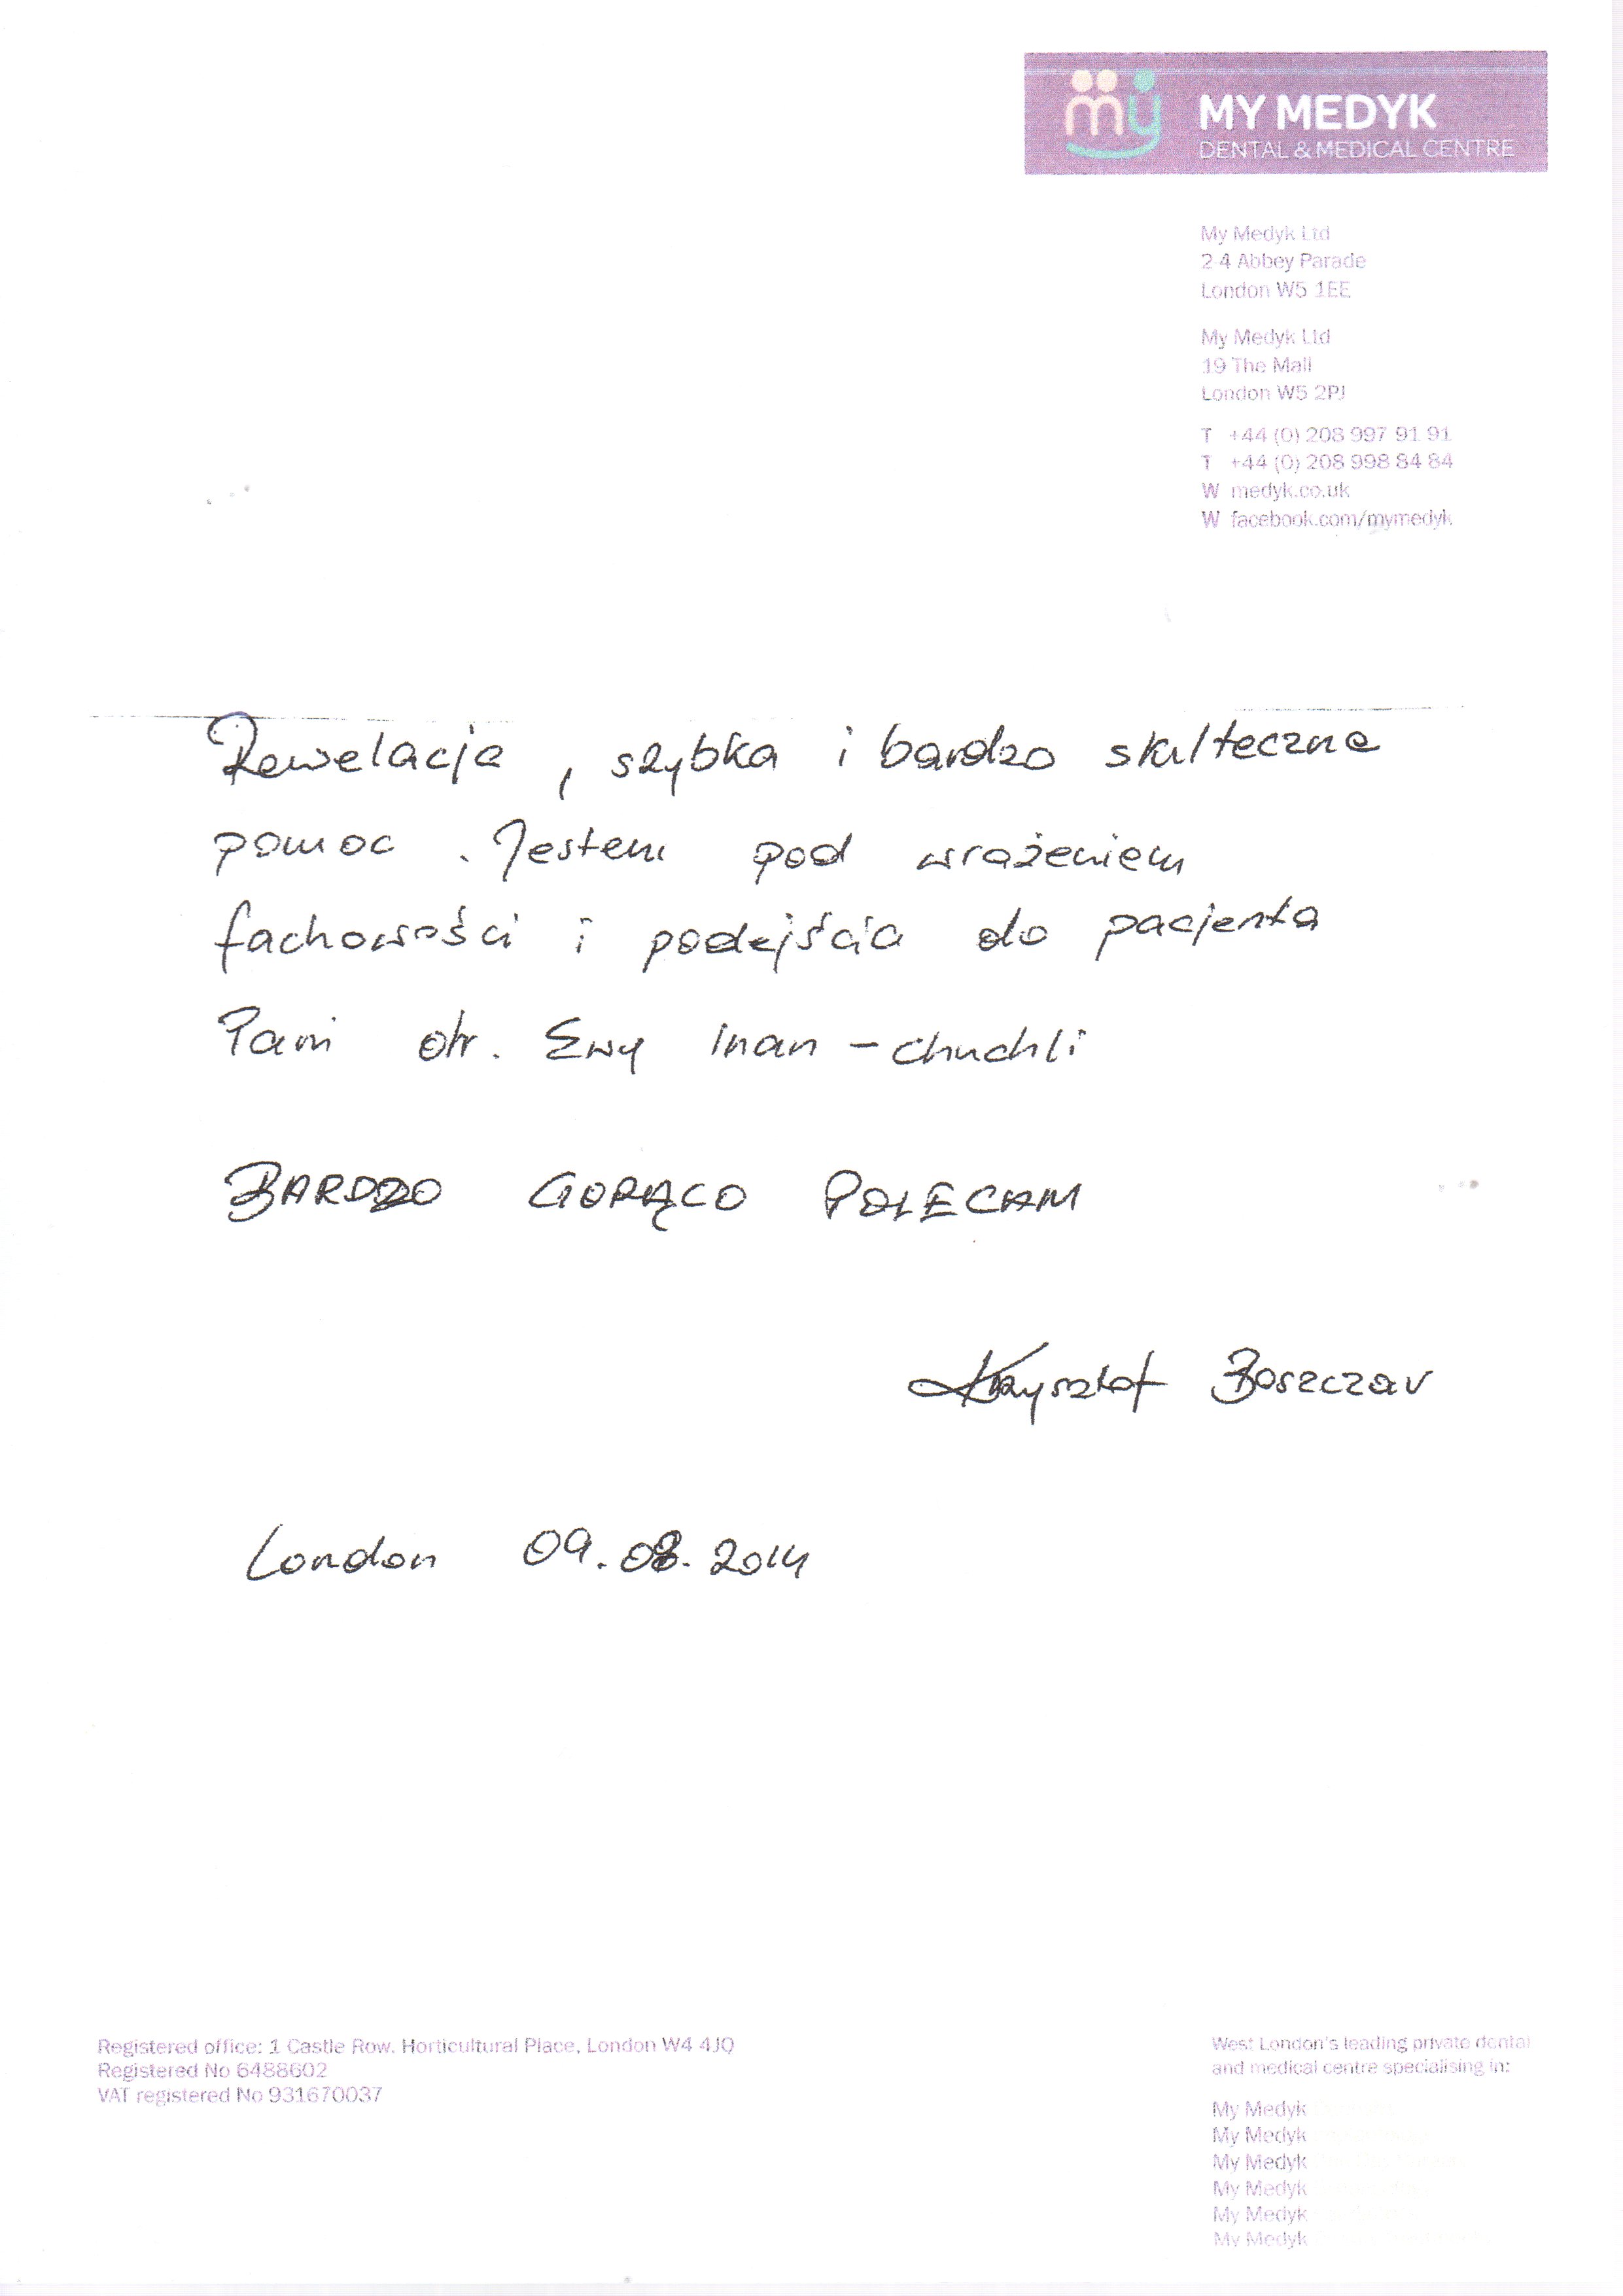 my MY MEDYK
DENTAL & MEDICAL CENTRE
My Medyk Ltd
2-4 Abbey Parade
London W5 1EE
My Medyk Ltd
19 The Mall
London W5 2PJ
T +44 (0) 208 997 91 91
T +44 (0) 208 998 84 84
W medyk.co.uk
W facebook.com/mymedyk
Rewelacja, szybka i bardzo skuteczna
pomoc. Jestem pod wrażeniem
fachowości i podejścia do pacjenta
Pani dr. Ewy Inan-Chuchli
BARDZO GORĄCO POLECAM
Krzysztof Boszczar
London 09.08.2014
Registered office: 1 Castle Row, Horticultural Place, London W4 4JQ
Registered No 6488602
VAT registered No 931670037
West London's leading private dental
and medical centre specialising in:
My Medyk
My Medyk
My Medyk
My Medyk
My Medyk
My Medyk